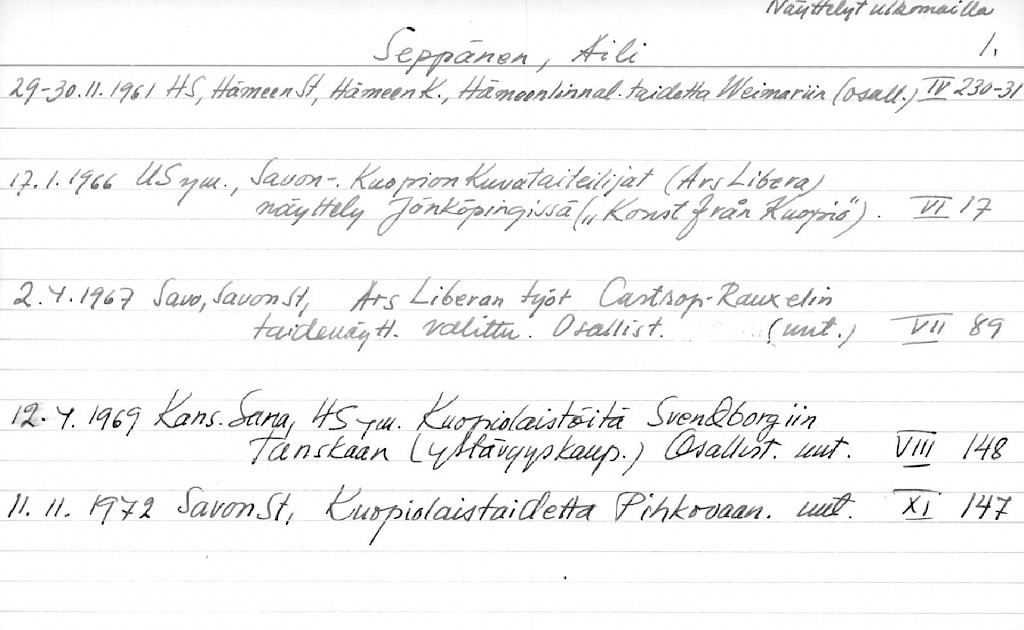 Näyttelyt ulkomailla
Seppänen, Aili 1.
29-30.11.1961 HS, HämeenSt, HämeenK., Hämeenlinnal. taidetta Weimariin (osall.) IV 230-31
17.1.1966 US ym., Savon-. Kuopion Kuvataiteilijat (Ars Libera)
näyttely Jönköpingissä („Konst från Kuopio"). VI 17
2.4.1967 Savo, SavonSt, Ars Liberan työt Castrop-Rauxelin
taidenäytt. valittu. Osallist. (uut.) VII 89
12.4.1969 Kans. Sana, HS ym. Kuopiolaistöitä Svendborgiin
Tanskaan (ystävyyskaup.) Osallist. uut. VIII 148
11.11.1972 SavonSt, Kuopiolaistaidetta Pihkovaan. uut. XI 147